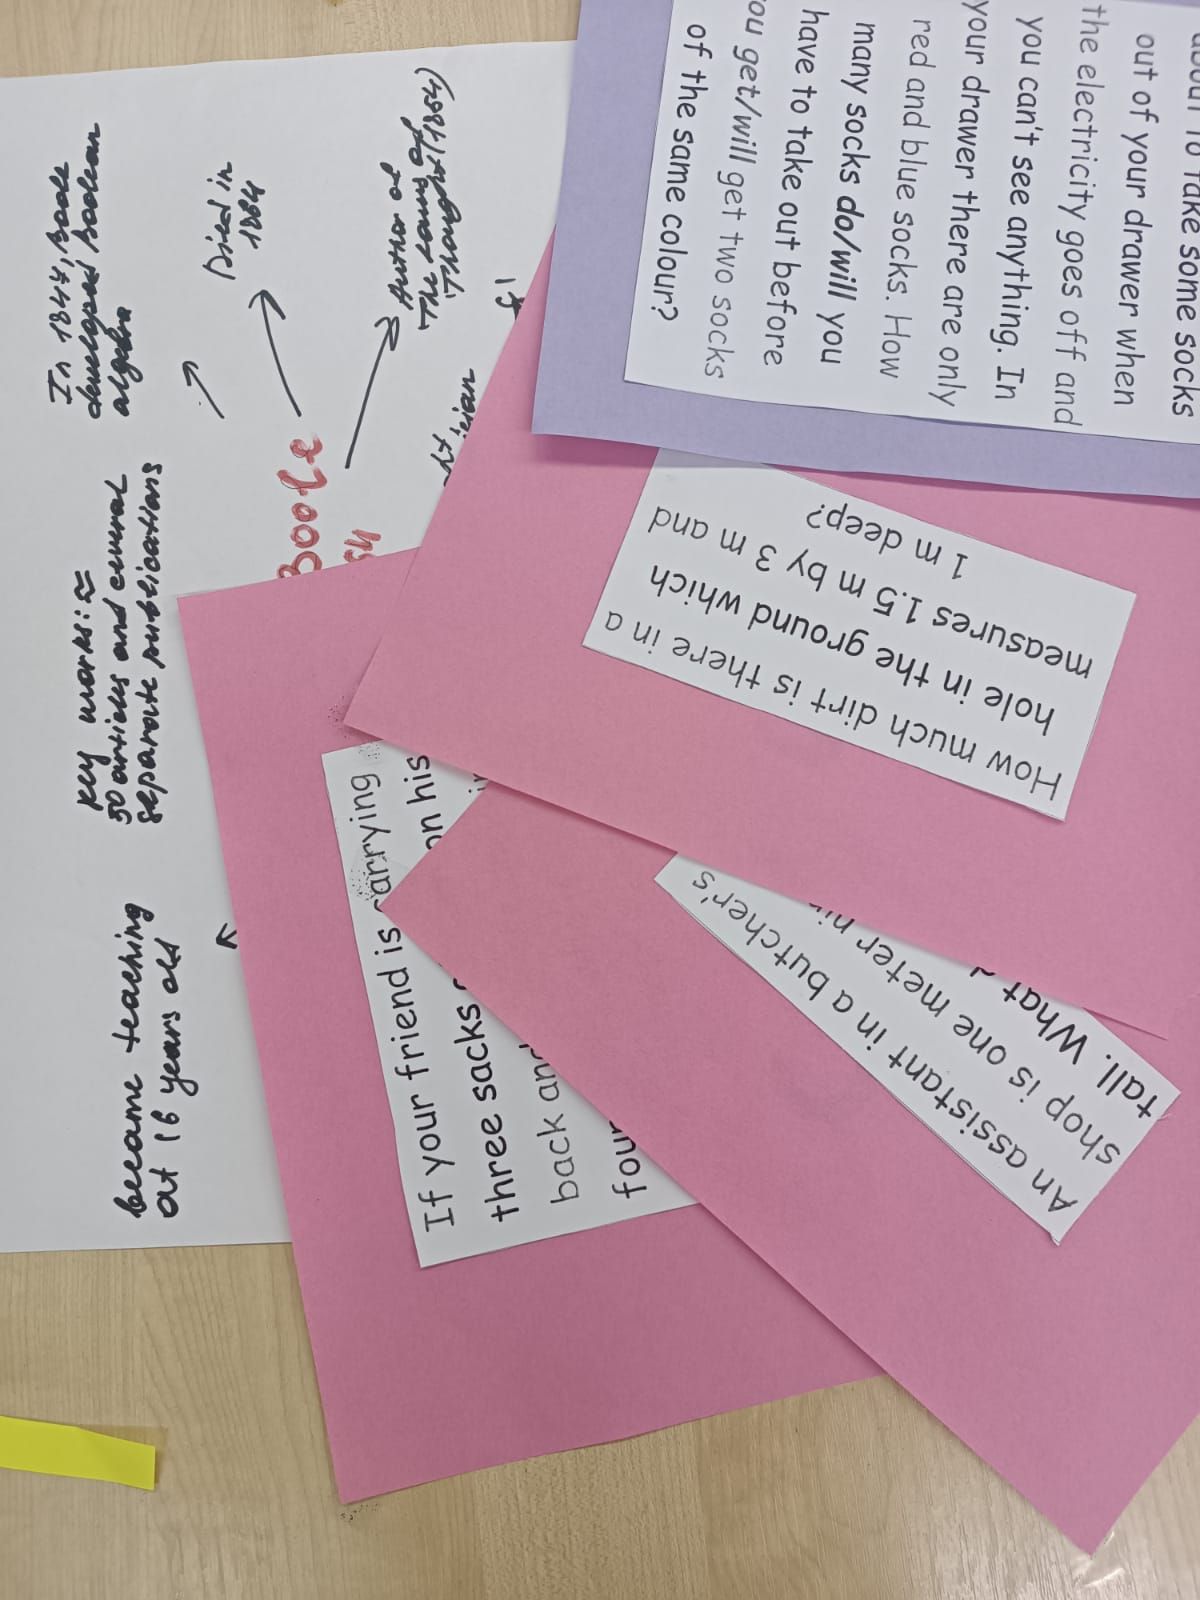 In 1847, Boole
developed boolean
algebra
Died in
1864
Author of
"The Laws of
Thought" (1854)
key works: ≈
50 articles and several
separate publications
became teaching
at 16 years old
Boole
to take some socks
out of your drawer when
the electricity goes off and
you can't see anything. In
your drawer there are only
red and blue socks. How
many socks do/will you
have to take out before
you get/will get two socks
of the same colour?
How much dirt is there in a
hole in the ground which
measures 1.5 m by 3 m and
1 m deep?
If your friend is carrying
three sacks on his
back and
four
An assistant in a butcher's
shop is one meter
tall. What